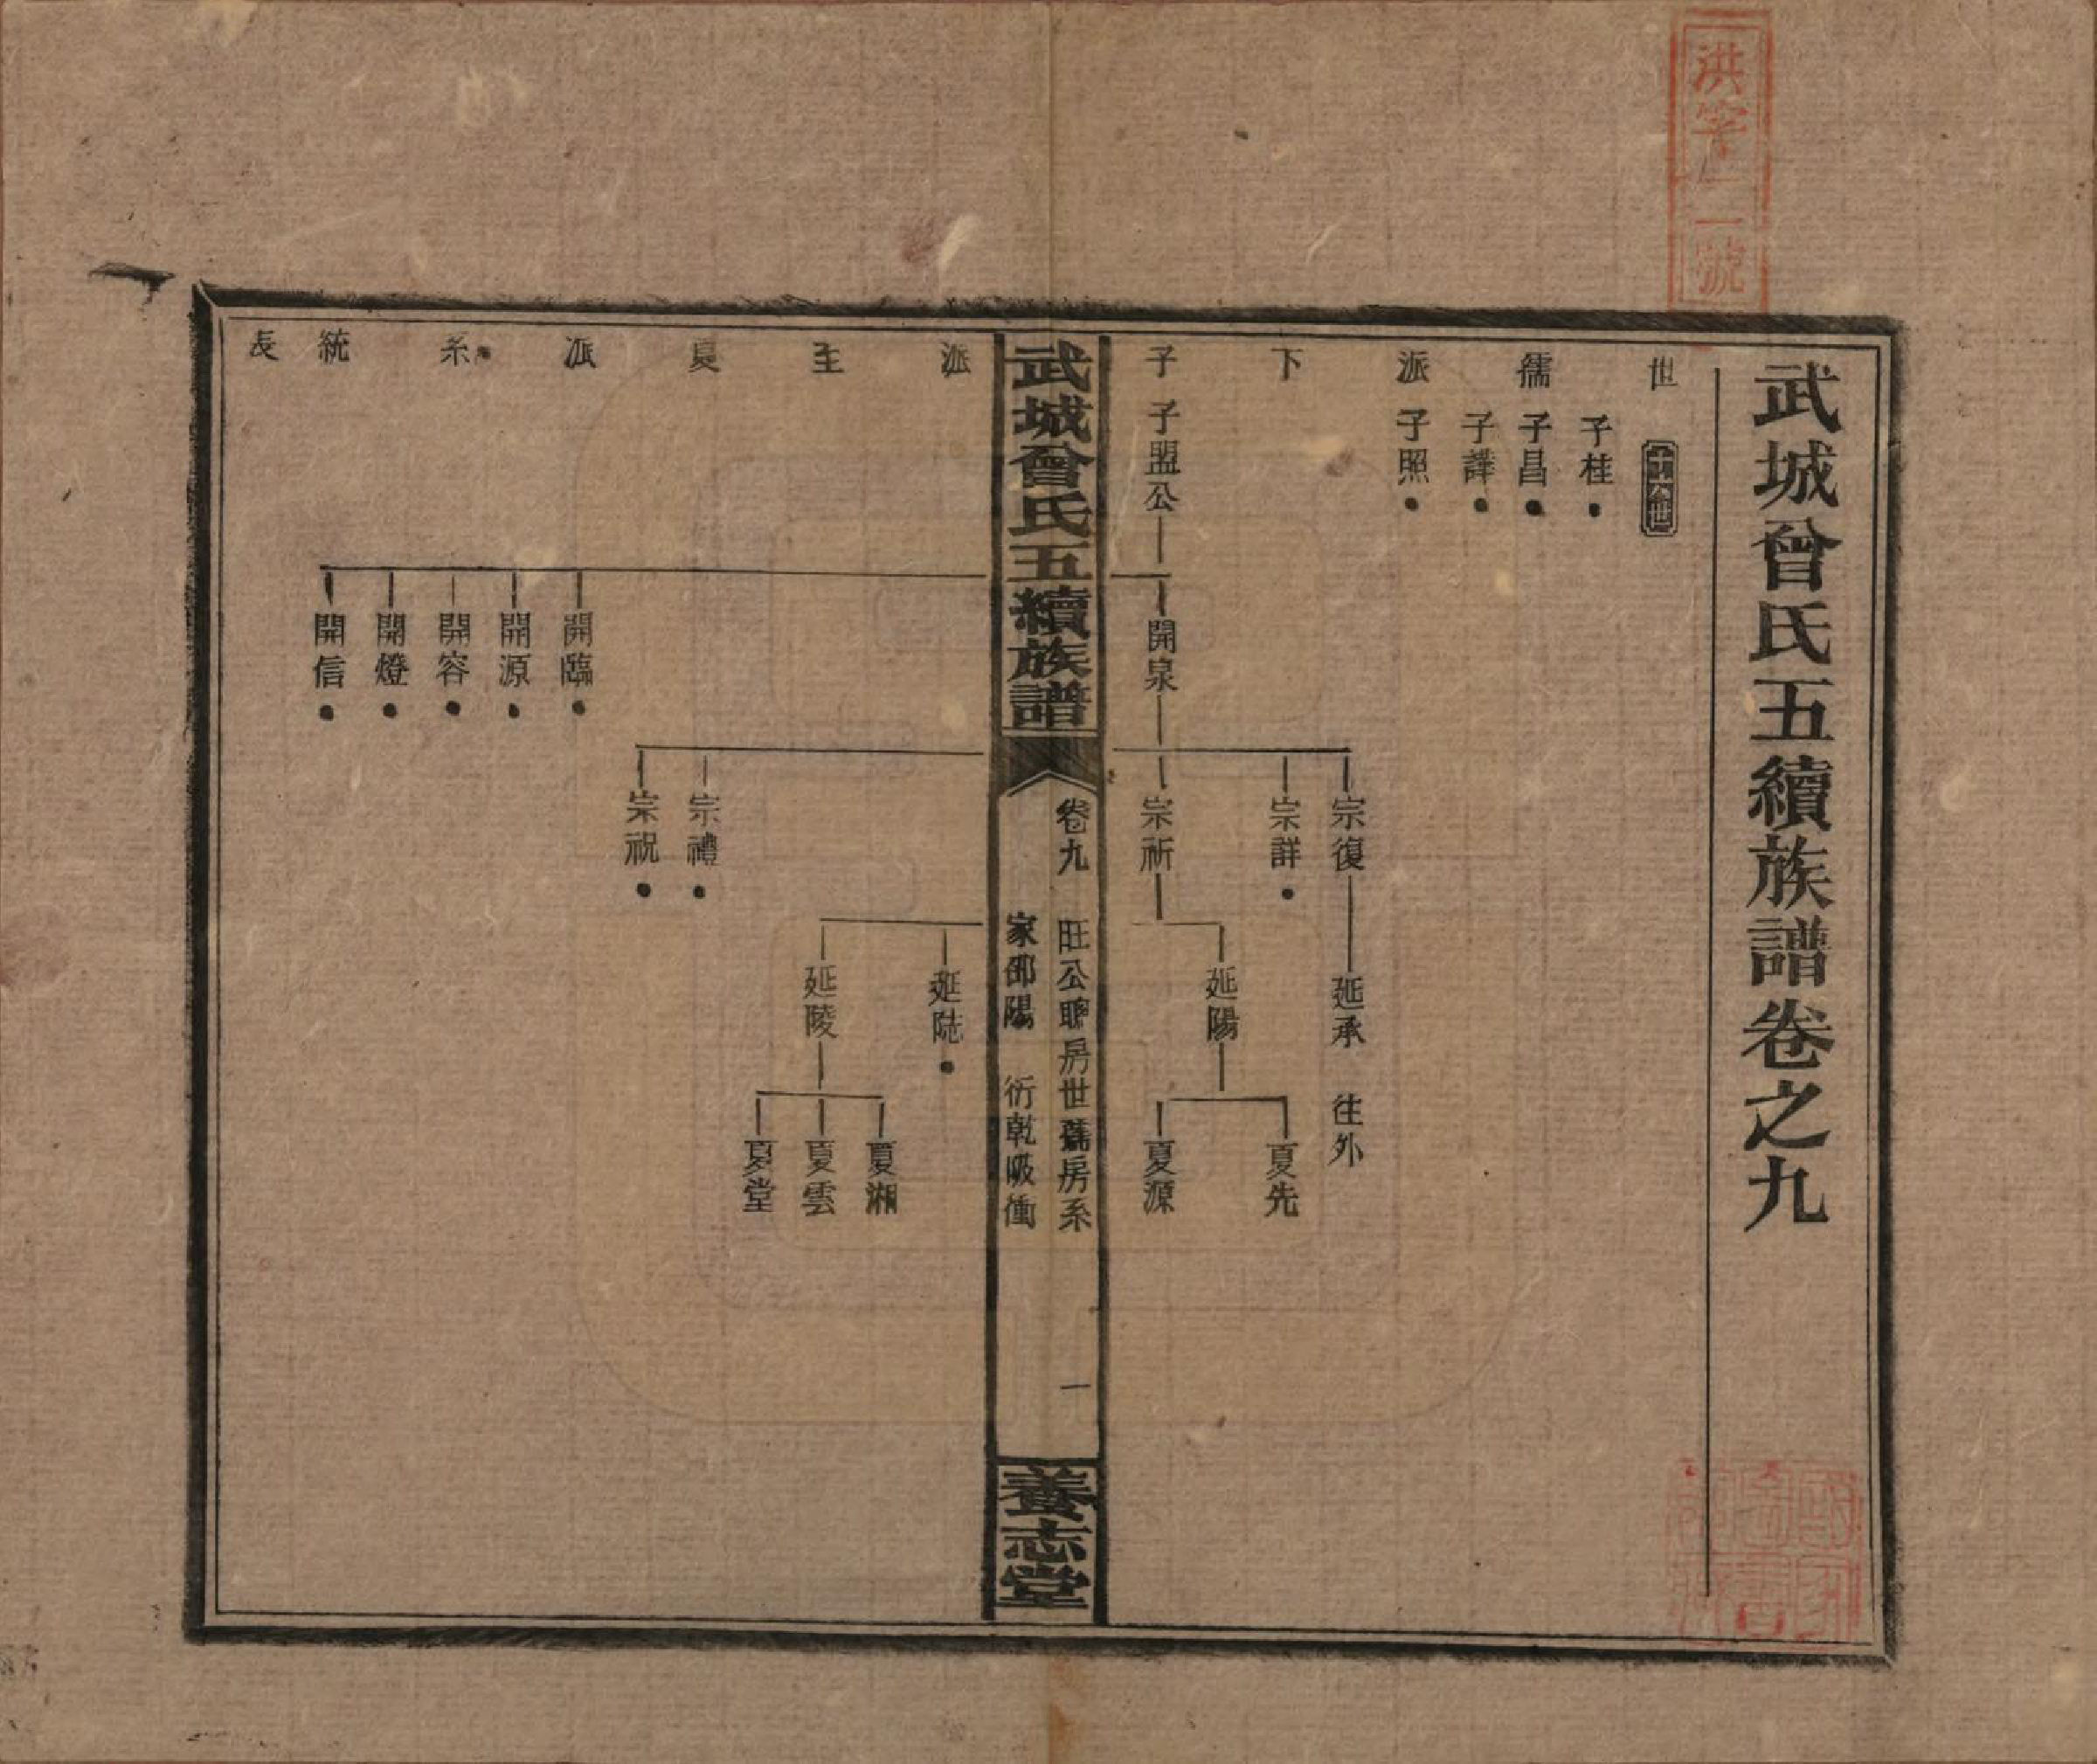 武城曾氏五續族譜卷之九
世儒派下子派至夏派系統表
子桂
子昌
子譁
子照
子盟公
開泉
開臨
開源
開容
開燈
開信
宗復
宗詳
宗祈
宗禮
宗祝
延承 往外
延陽
延陡
延陵
夏先
夏源
夏湘
夏雲
夏堂
武城曾氏五續族譜
卷九 旺公聰房世儒房系
家邵陽 衍乾吸衝
一
養志堂
洪字一號